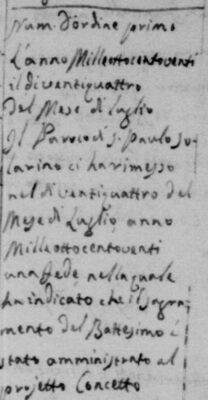 Num. d'ordine primo
L'anno Milleottocentoventi
il dì ventiquattro
del Mese di Luglio
Il Paroco di S. Paulo So-
larino ci ha rimesso
nel dì ventiquattro del
Mese di Luglio anno
Milleottocentoventi
una fede, nella quale
ha indicato che il Sagra-
mento del Battesimo è
stato amministrato al
projetto Concetto